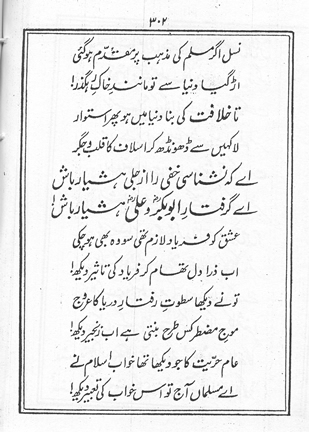 ۳۰۲
نسل اگر مسلم کی مذہب پر مقدّم ہو گئی
اڑ گیا دنیا سے تو مانندِ خاکِ رہگذر!
تا خلافت کی بنا دنیا میں ہو پھر استوار
لا کہیں سے ڈھونڈھ کر اسلاف کا قلب و جگر
اے کہ نشناسی خفی را از جلی ہشیار باش
اے گرفتارِ ابوبکرؓ و علیؓ ہشیار باش!
عشق کو فریاد لازم تھی سو وہ بھی ہو چکی
اب ذرا دل تھام کر فریاد کی تاثیر دیکھ!
تو نے دیکھا سطوتِ رفتارِ دریا کا عروج
موجِ مضطر کس طرح بنتی ہے اب زنجیر دیکھ!
عام حرّیت کا جو دیکھا تھا خواب اسلام نے
اے مسلماں آج تو اس خواب کی تعبیر دیکھ!